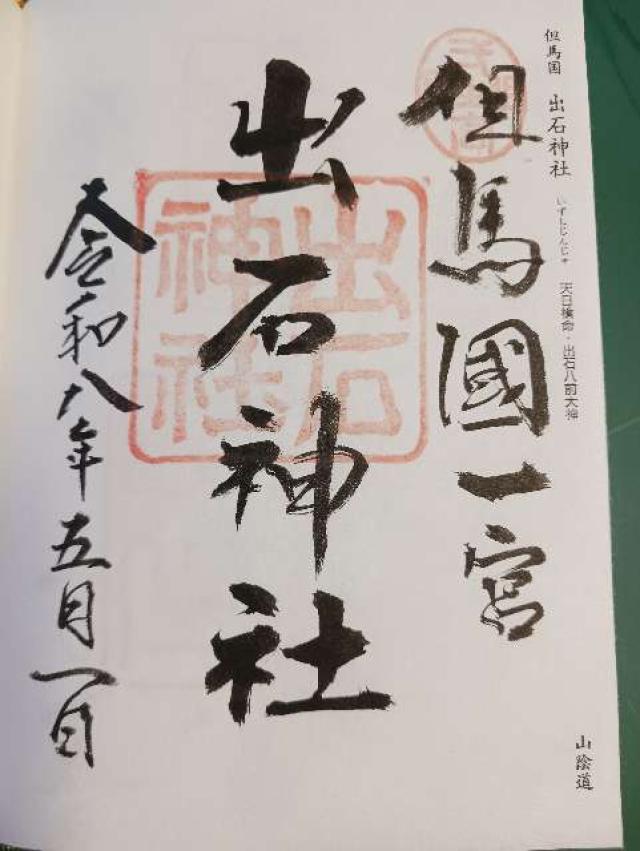 但馬国 出石神社 いずしじんじゃ 天日槍命・出石八前大神
山陰道
但馬國一宮
出石神社
出石神社
令和八年五月一日